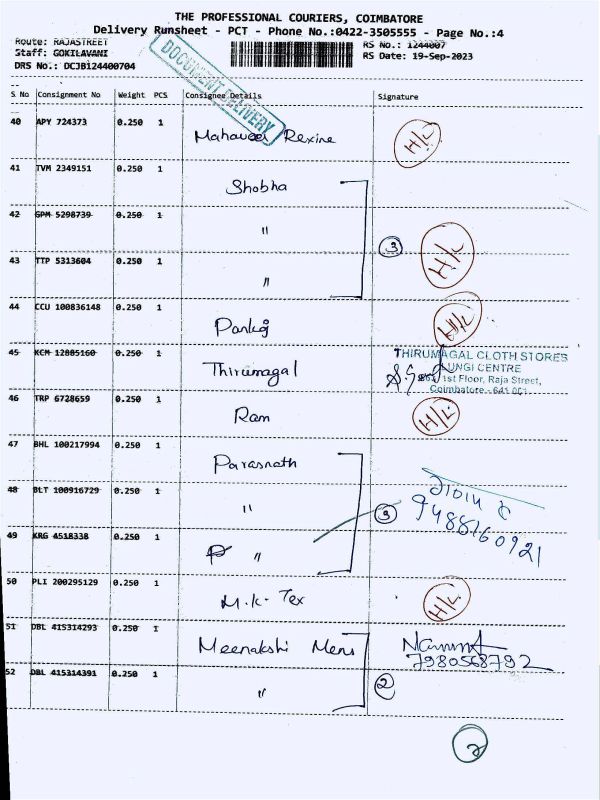 THE PROFESSIONAL COURIERS, COIMBATORE
Delivery Runsheet - PCT - Phone No.:0422-3505555 - Page No.:4
Route: RAJASTREET RS No.: 1244007
Staff: GOKILAVANI RS Date: 19-Sep-2023
DRS No.: DCJB124400704
DOCUMENT DELIVERY
S No Consignment No Weight PCS Consignee Details Signature
40 APY 724373 0.250 1 Mahaveer Rexine H/L
41 TVM 2349151 0.250 1 Shobha
42 GPM 5298739 0.250 1 "
43 TTP 5313604 0.250 1 " 3 H/L
44 CCU 100836148 0.250 1 Pankaj H/L
45 KCM 12885160 0.250 1 Thirumagal
THIRUMAGAL CLOTH STORES
LUNGI CENTRE
1st Floor, Raja Street,
Coimbatore - 641 001
46 TRP 6728659 0.250 1 Ram H/L
47 BHL 100217994 0.250 1 Parasnath
48 BLT 100916729 0.250 1 " 3
9488160921
49 KRG 4518338 0.250 1 "
50 PLI 200295129 0.250 1 M.K. Tex H/L
51 DBL 415314293 0.250 1 Meenakshi Mens
7980568792
52 DBL 415314391 0.250 1 " 2
2